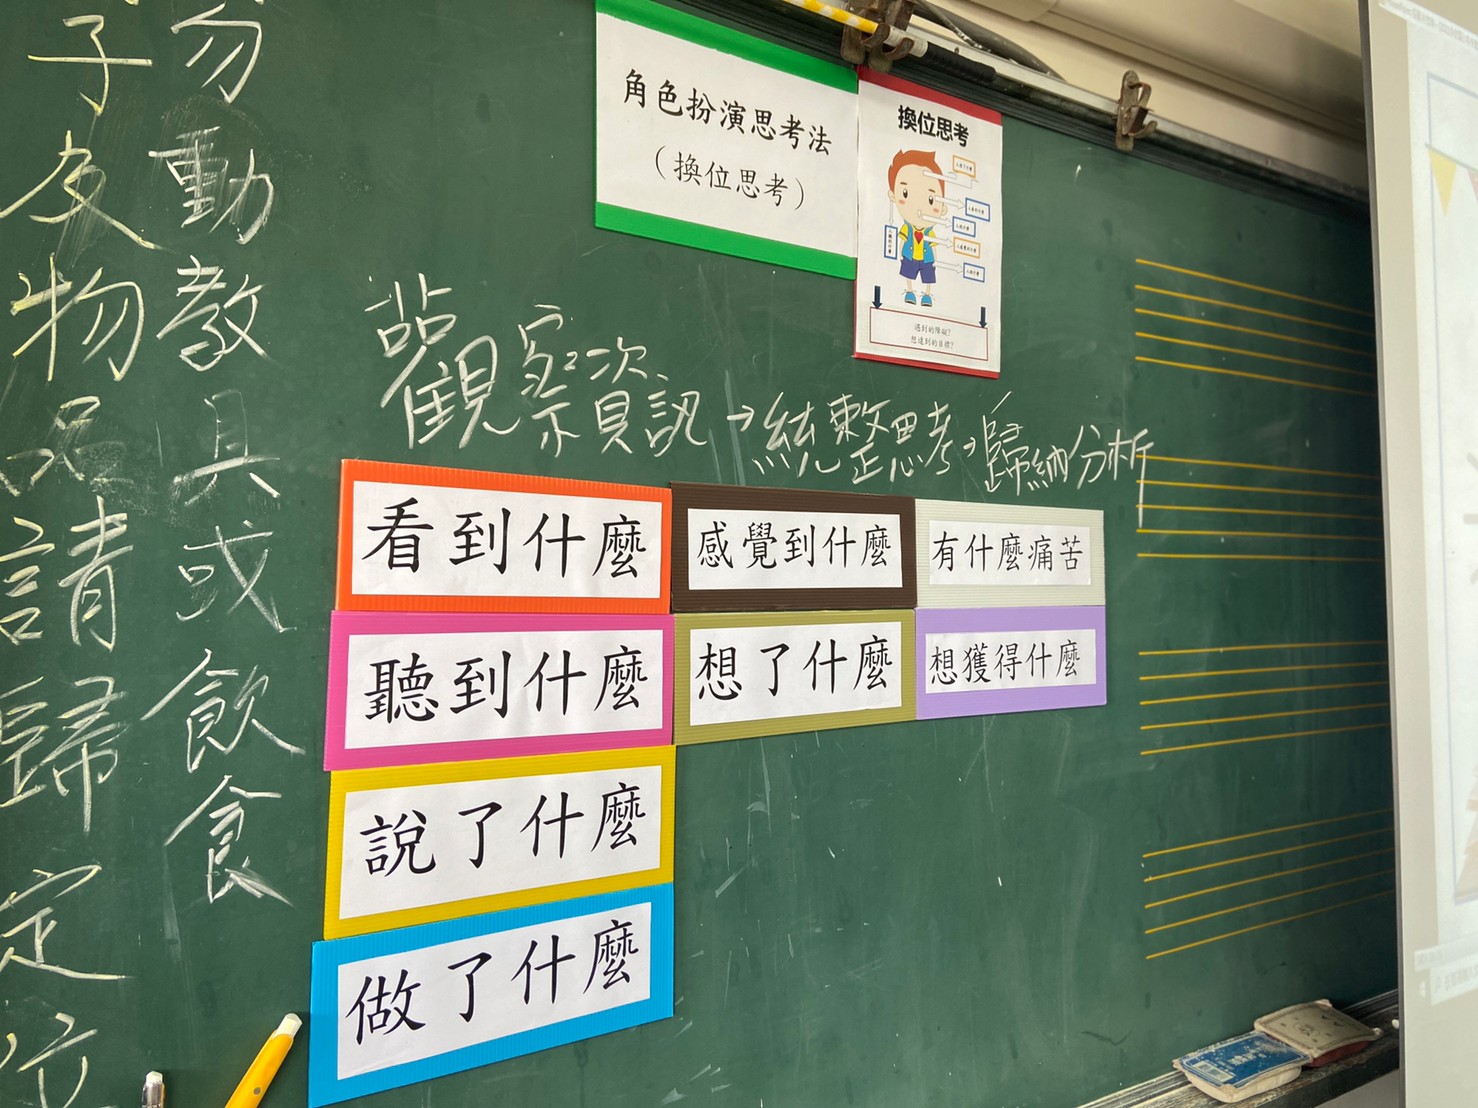 勿動教具或飲食
子及物品請歸定位
角色扮演思考法
（換位思考）
換位思考
遇到的障礙?
想達到的目標?
觀察資訊→統整思考→歸納分析
看到什麼
感覺到什麼
有什麼痛苦
聽到什麼
想了什麼
想獲得什麼
說了什麼
做了什麼